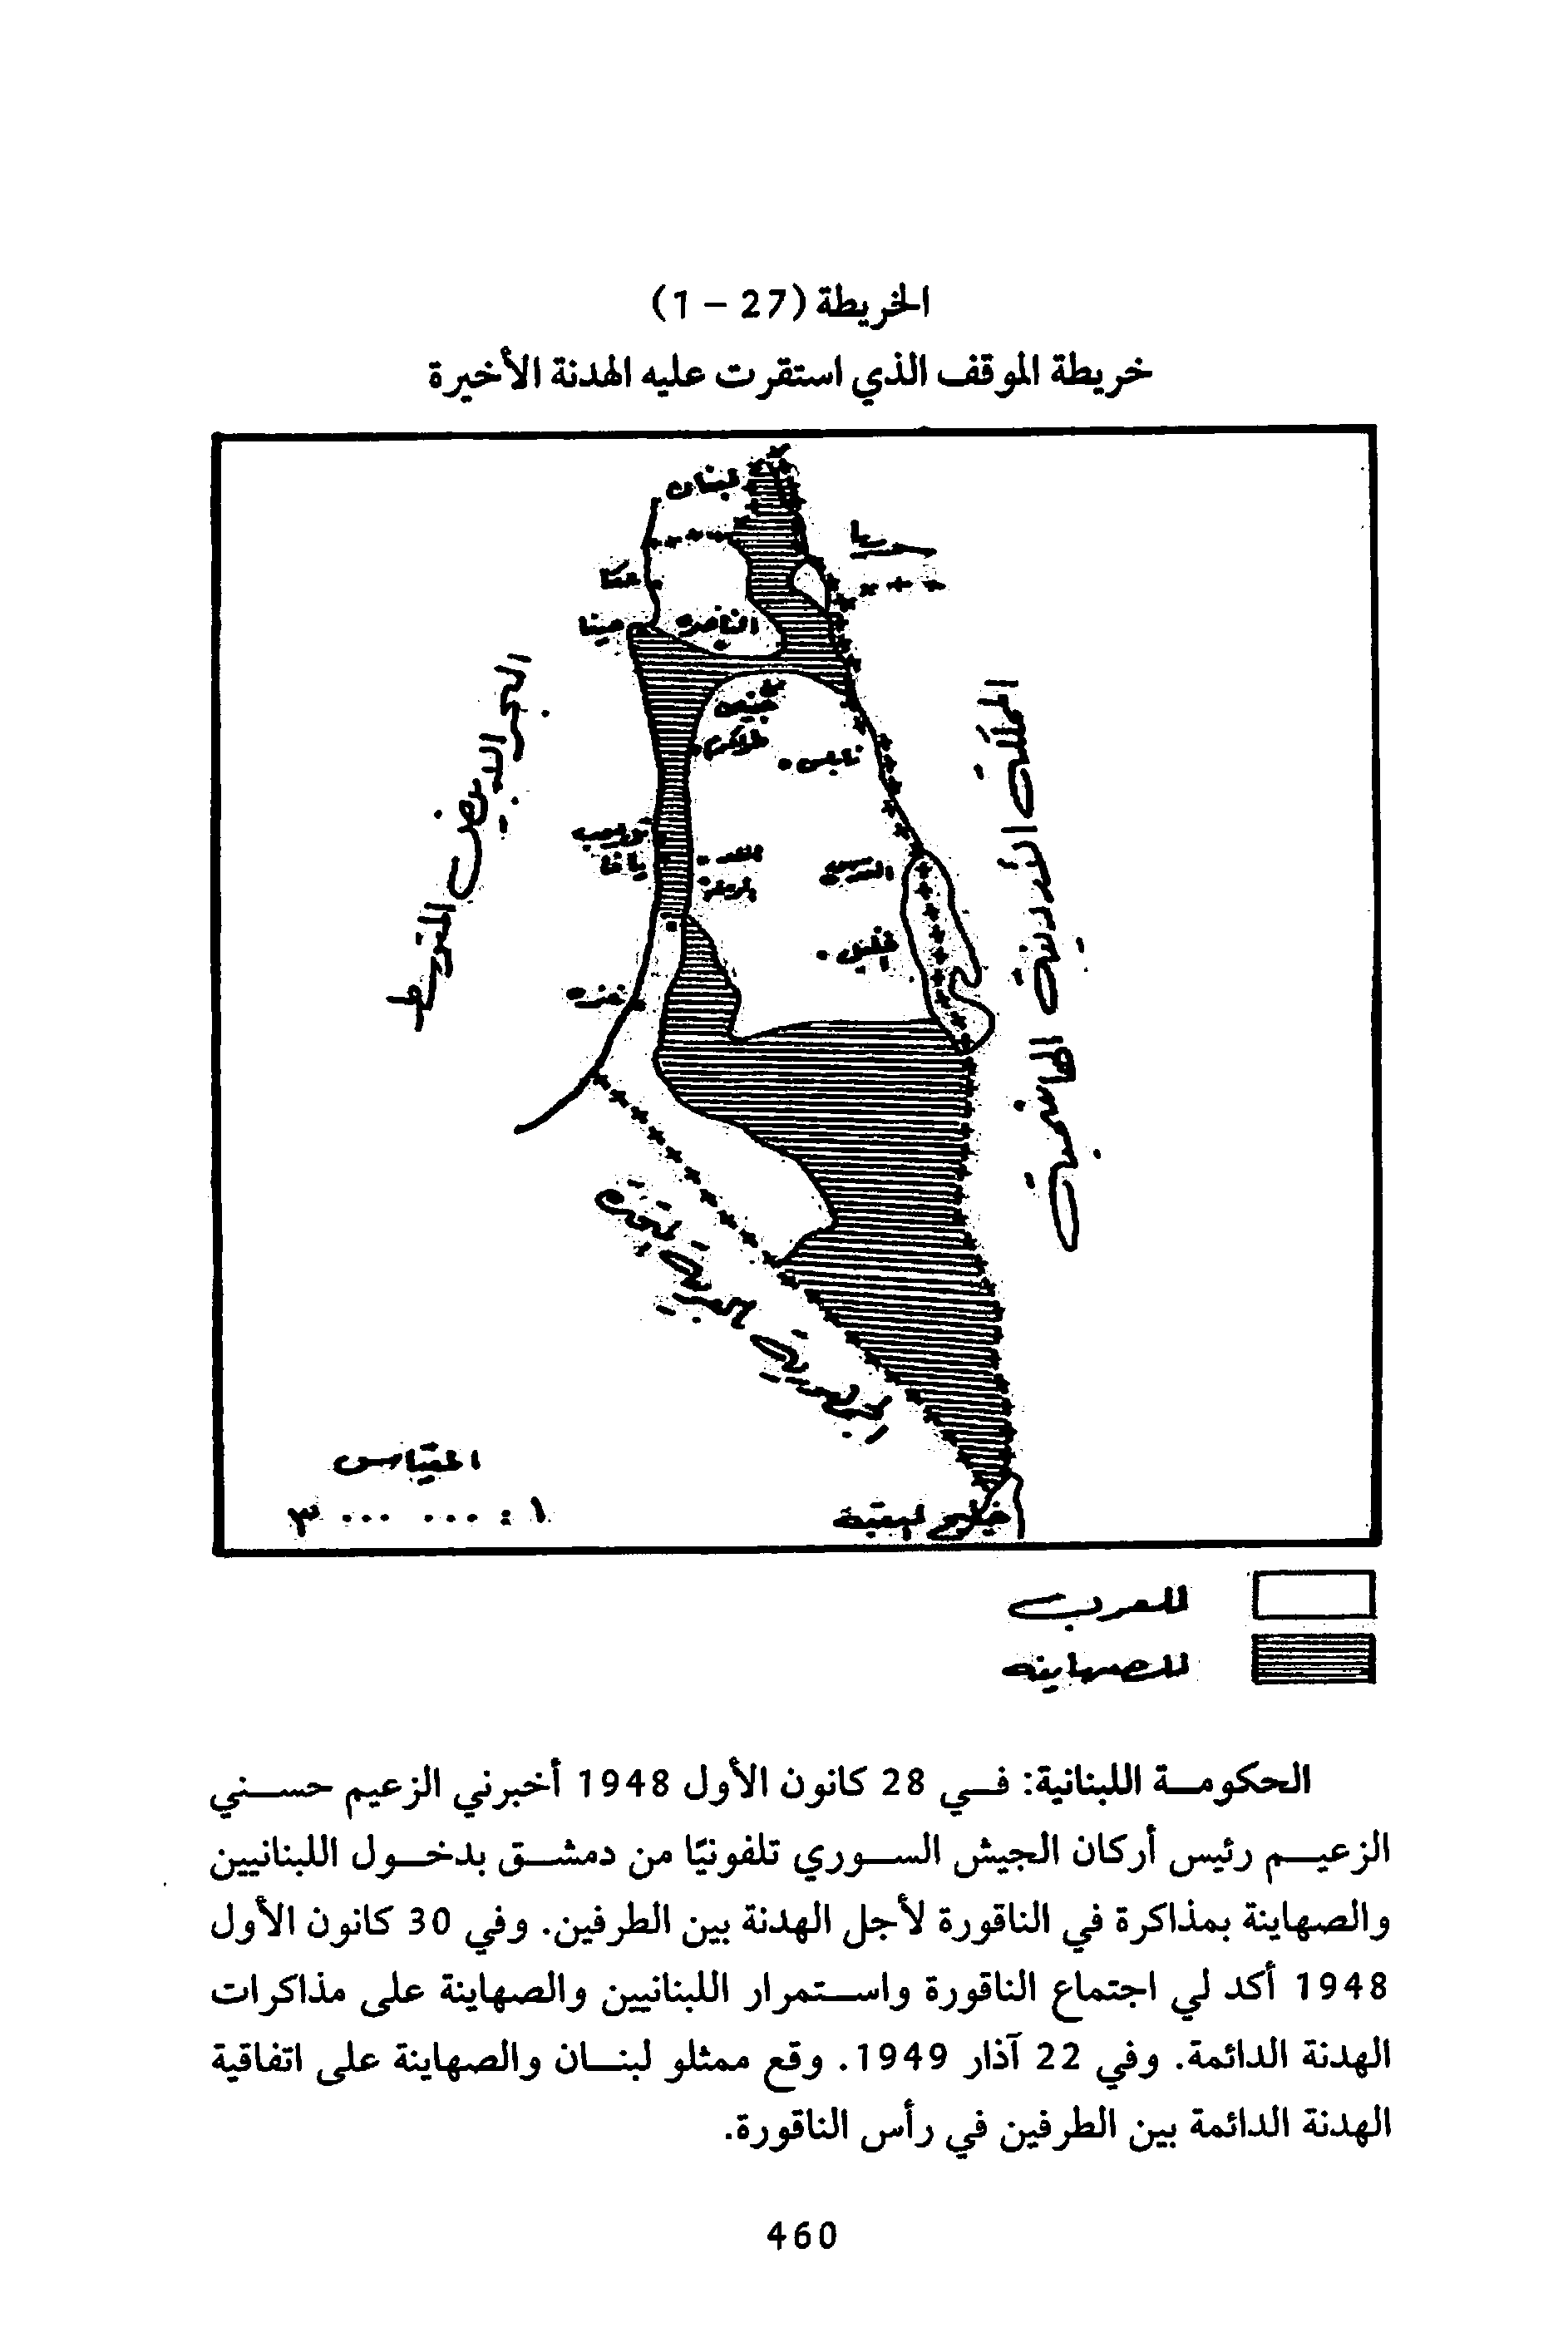 الخريطة (27 – 1)
خريطة الموقف الذي استقرت عليه الهدنة الأخيرة
لبنان
سوريا
عكا
حيفا
الناصرة
جنين
طولكرم
نابلس
تل ابيب
يافا
اللد
الرملة
القدس
الخليل
غزة
البحر الابيض المتوسط
المملكة الأردنية الهاشمية
خليج العقبة
المقياس
١ : ٠٠٠ ٠٠٠ ٣
للعرب
للصهاينه
الحكومة اللبنانية: في 28 كانون الأول 1948 أخبرني الزعيم حسني
الزعيم رئيس أركان الجيش السوري تلفونيًا من دمشق بدخول اللبنانيين
والصهاينة بمذاكرة في الناقورة لأجل الهدنة بين الطرفين. وفي 30 كانون الأول
1948 أكد لي اجتماع الناقورة واستمرار اللبنانيين والصهاينة على مذاكرات
الهدنة الدائمة. وفي 22 آذار 1949. وقع ممثلو لبنان والصهاينة على اتفاقية
الهدنة الدائمة بين الطرفين في رأس الناقورة.
460